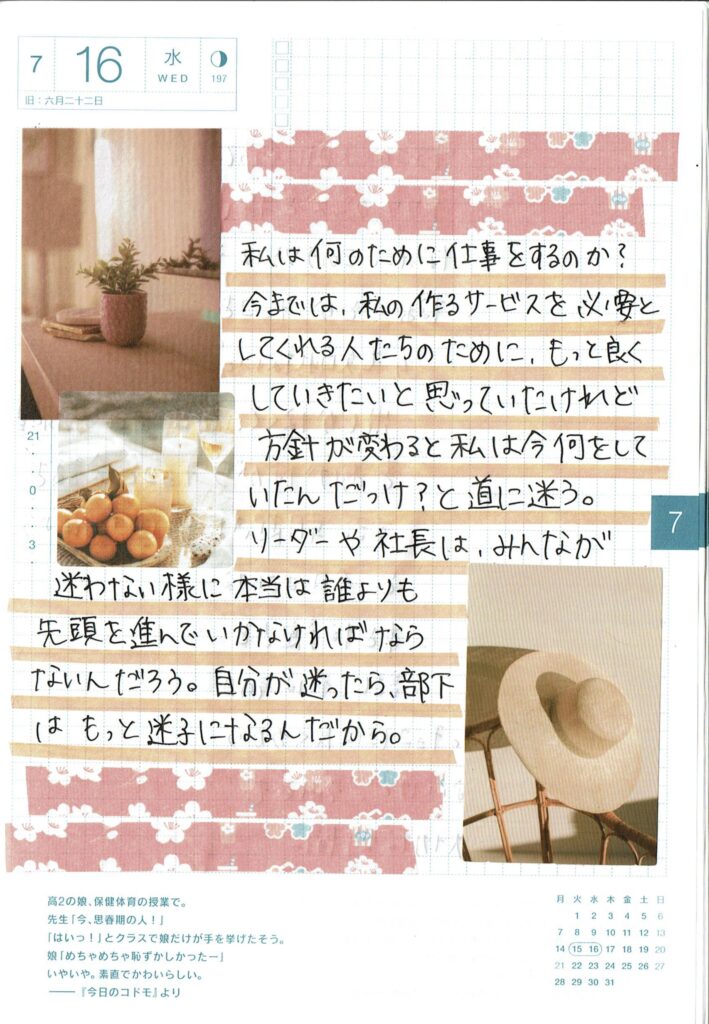 7
16
水
WED
197
旧：六月二十二日
私は何のために仕事をするのか？
今までは、私の作るサービスを必要と
してくれる人たちのために、もっと良く
していきたいと思っていたけれど
方針が変わると私は今何をして
いたんだっけ？と道に迷う。
リーダーや社長は、みんなが
迷わない様に本当は誰よりも
先頭を進んでいかなければなら
ないんだろう。自分が迷ったら、部下
はもっと迷子になるんだから。
21
0
3
7
高2の娘、保健体育の授業で。
先生「今、思春期の人！」
「はいっ！」とクラスで娘だけが手を挙げたそう。
娘「めちゃめちゃ恥ずかしかったー」
いやいや。素直でかわいらしい。
――『今日のコドモ』より
月 火 水 木 金 土 日
1 2 3 4 5 6
7 8 9 10 11 12 13
14 15 16 17 18 19 20
21 22 23 24 25 26 27
28 29 30 31